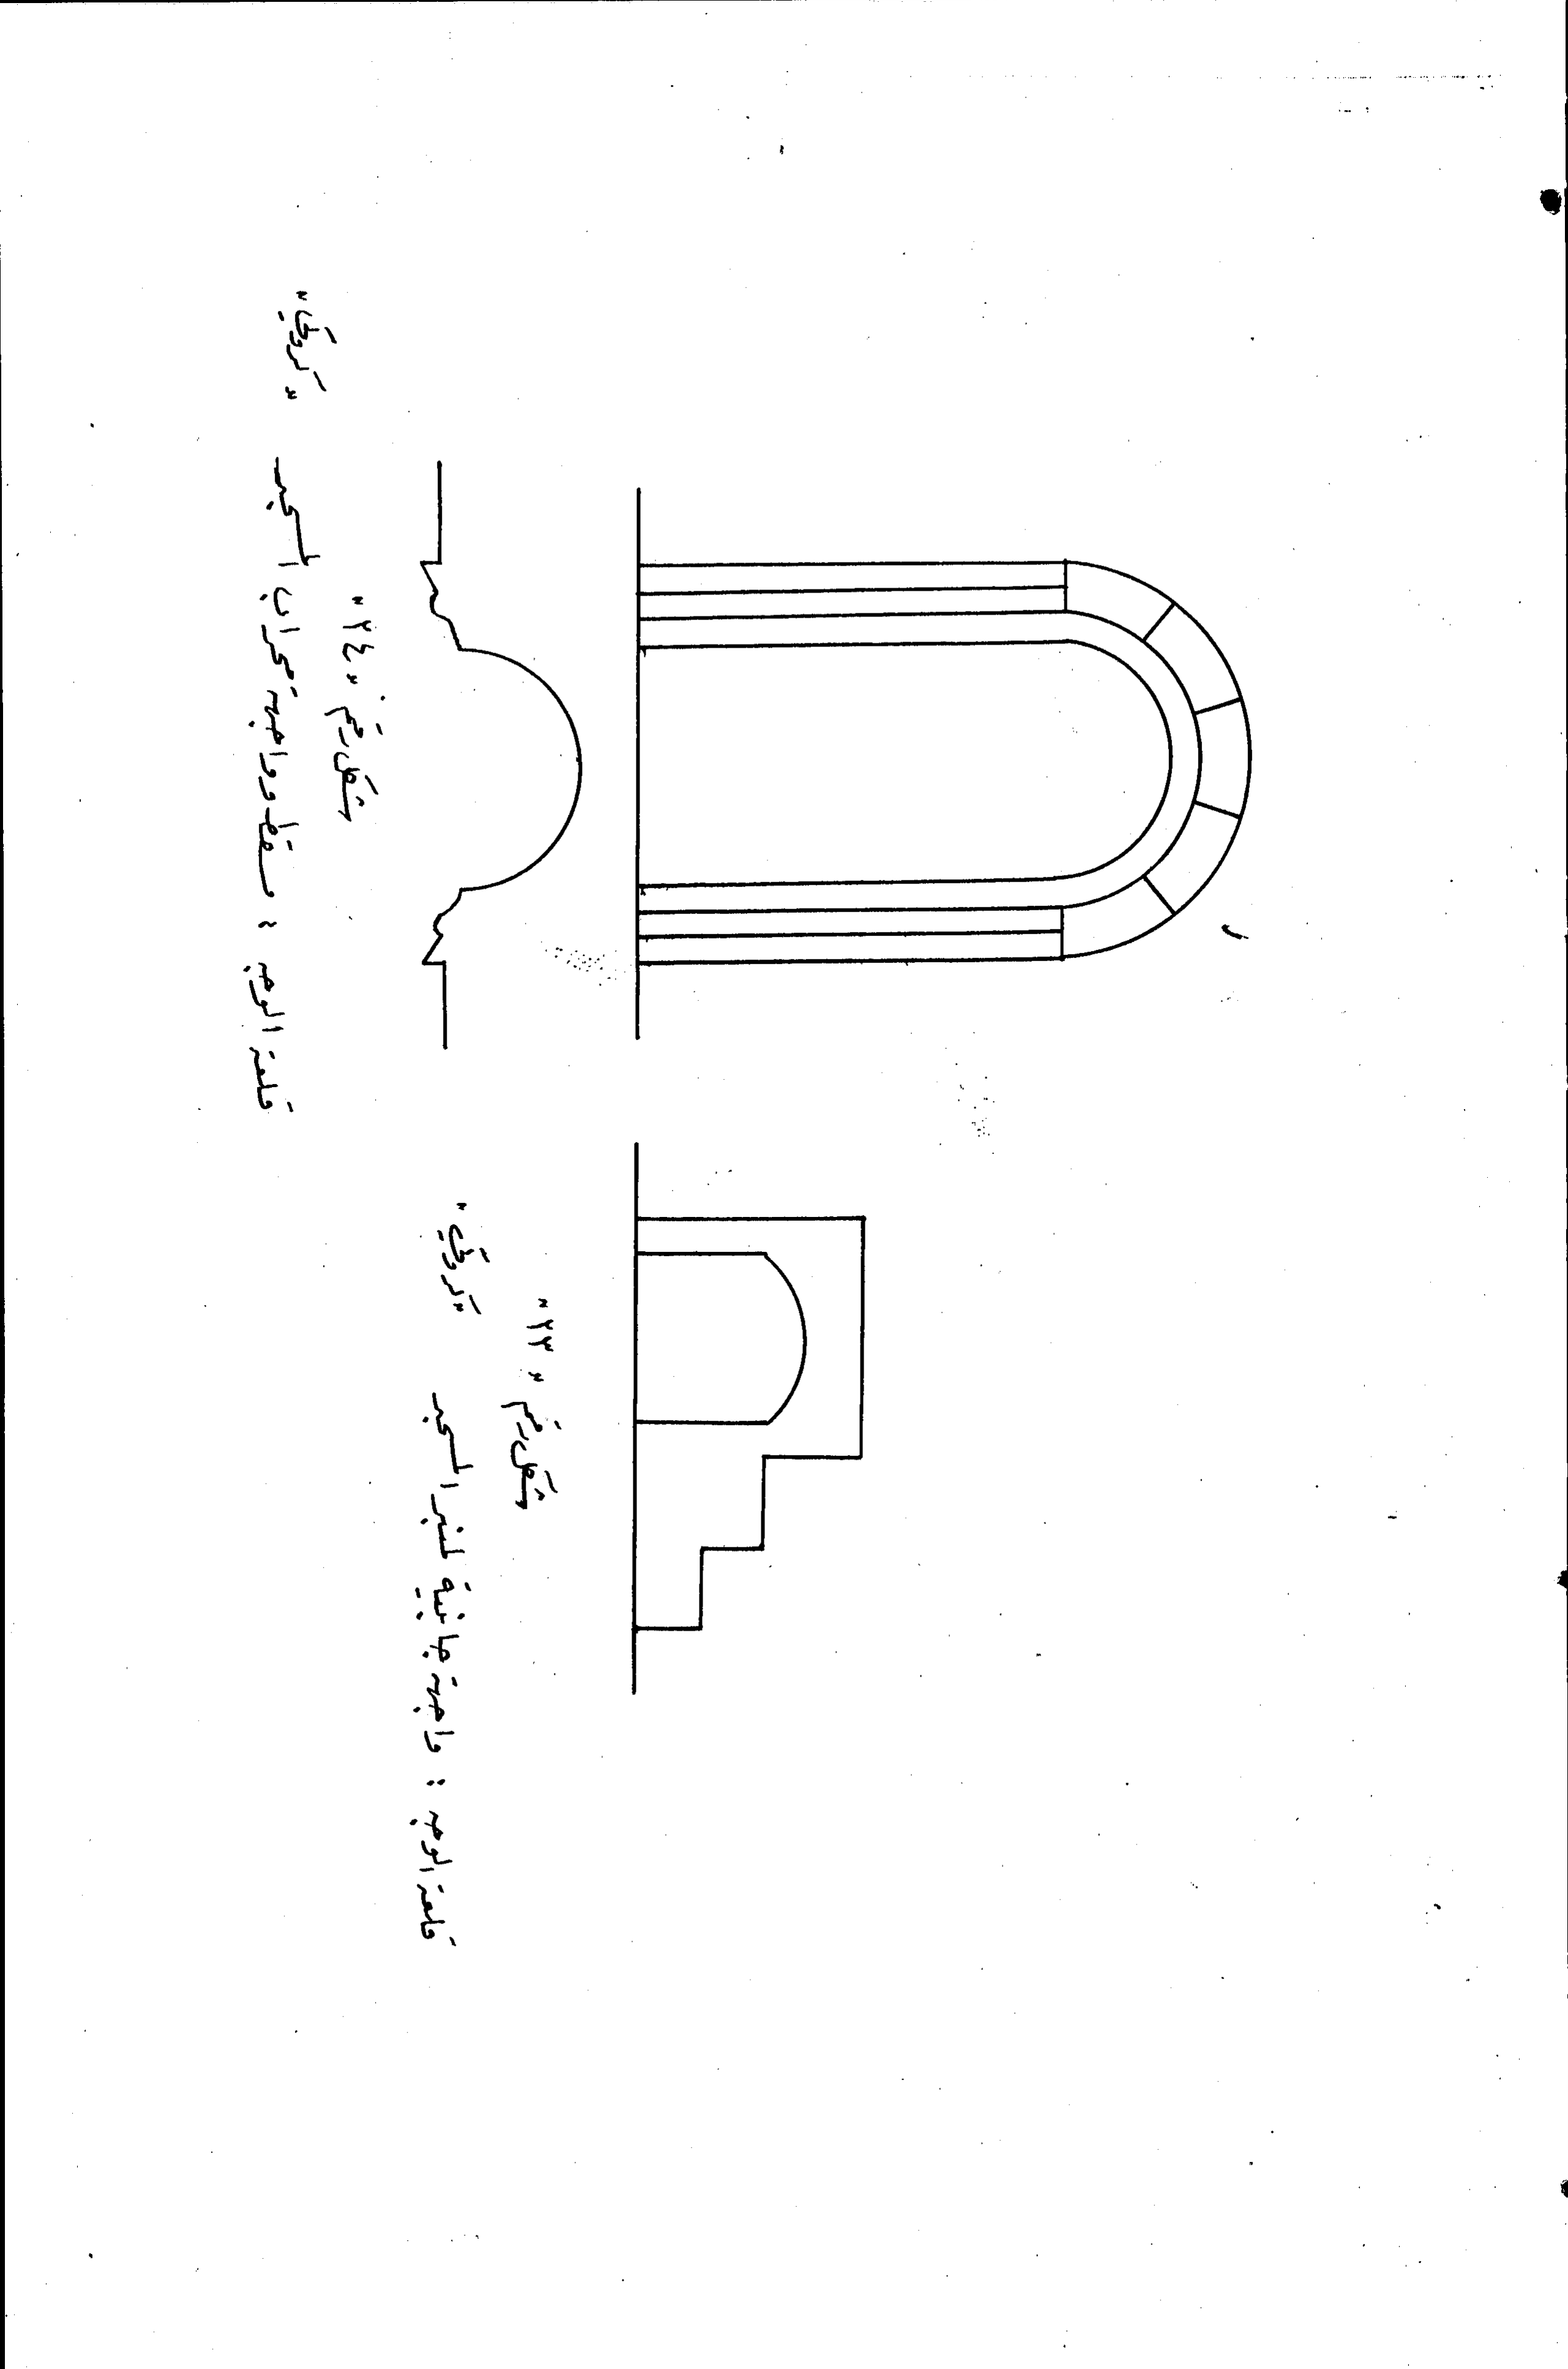 شكل رقم "٢٣"
قلعة الوجه : واجهة جانبية لمنبر المسجد "كروكي"
شكل رقم "٢٤"
قلعة الوجه : مسقط وواجهة محراب المسجد "كروكي"